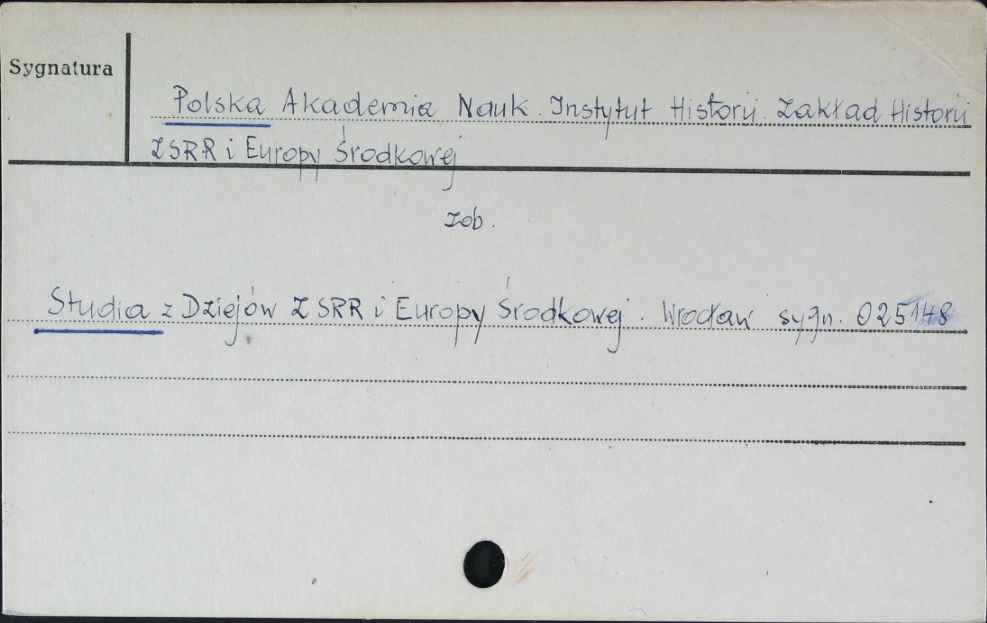 Sygnatura
Polska Akademia Nauk. Instytut Historii. Zakład Historii
ZSRR i Europy Środkowej
zob.
Studia z Dziejów ZSRR i Europy Środkowej. Wrocław sygn. 025148